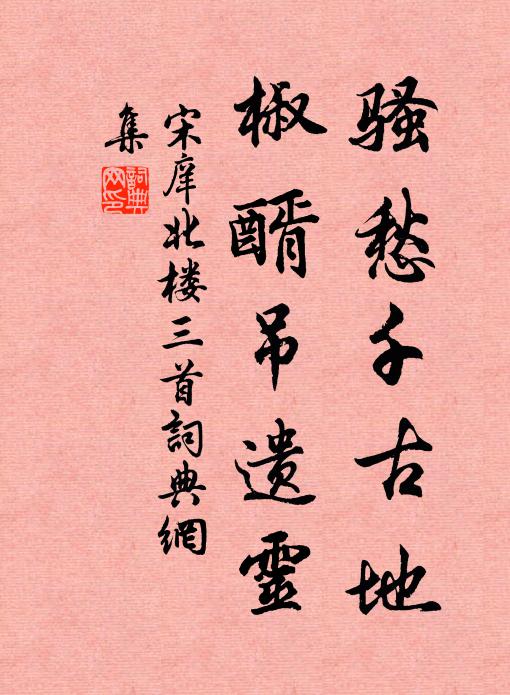 骚愁千古地
椒醑吊遗靈
宋庠北楼三首詞典網
集
詞典网印